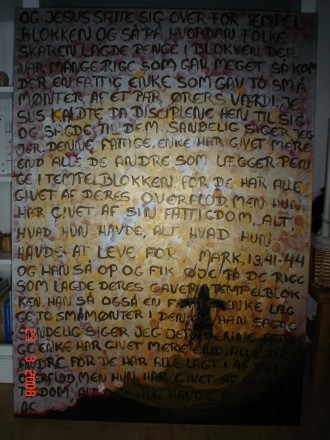 OG JESUS SATTE SIG OVER FOR TEMPEL
BLOKKEN OG SÅ PÅ HVORDAN FOLKE
SKAREN LAGDE PENGE I BLOKKEN. DER
VAR MANGE RIGE SOM GAV MEGET SÅ KOM
DER EN FATTIG ENKE SOM GAV TO SMÅ
MØNTER AF ET PAR ØRERS VÆRDI. JE
SUS KALDTE DA DISCIPLENE HEN TIL SIG
OG SAGDE TIL DEM. SANDELIG SIGER JEG
JER. DENNE FATTIGE, ENKE HAR GIVET MERE
END ALLE DE ANDRE SOM LÆGGER PEN
GE I TEMPELBLOKKEN. FOR DE HAR ALLE
GIVET AF DERES OVERFLOD, MEN HUN
HAR GIVET AF SIN FATTIGDOM, ALT
HVAD HUN HAVDE, ALT HVAD HUN
HAVDE AT LEVE FOR MARK, 13.41-44
OG HAN SÅ OP OG FIK ØJE PÅ DE RIGE
SOM LAGDE DERES GAVER I TEMPELBLOK
KEN. HAN SÅ OGSÅ EN ENKE LÆG
GE TO SMÅMØNTER I DEN. OG HAN SAGDE
SANDELIG SIGER JEG JER. DENNE FATTI
GE ENKE HAR GIVET MERE END ALLE DE
ANDRE FOR DE HAR ALLE LAGT I AF
OVERFLOD, MEN HUN HAR GIVET AF
ALT DET HUN
23 8 2008